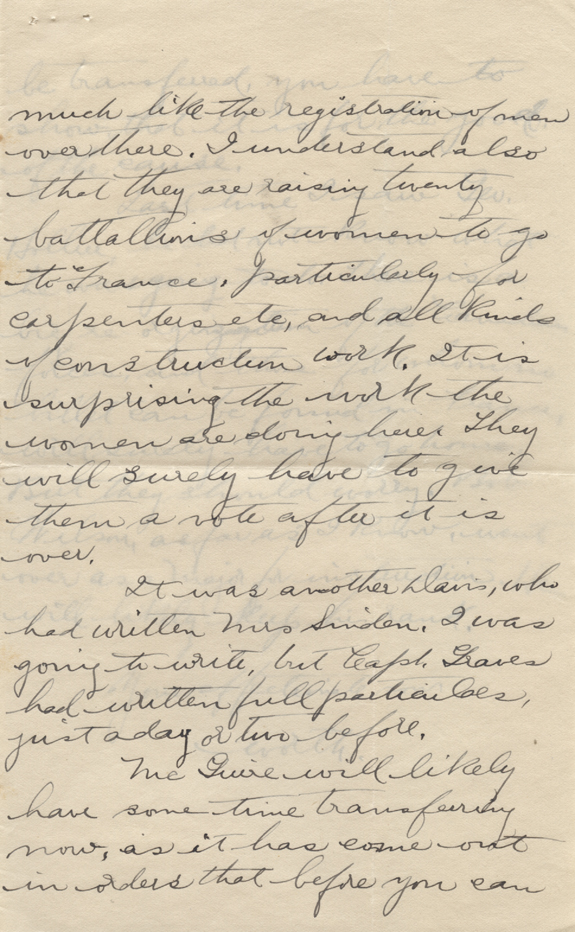 much like the registration of men
over there. I understand also
that they are raising twenty
battallions of women to go
to France. Particularly for
carpenters etc, and all kinds
of construction work. It is
surprising the work the
women are doing here. They
will surely have to give
them a vote after it is
over.
It was another Davis, who
had written Mrs Sinden. I was
going to write, but Capt. Graves
had written full particulars,
just a day or two before.
McGuire will likely
have some time transferring
now, as it has come out
in orders that before you can